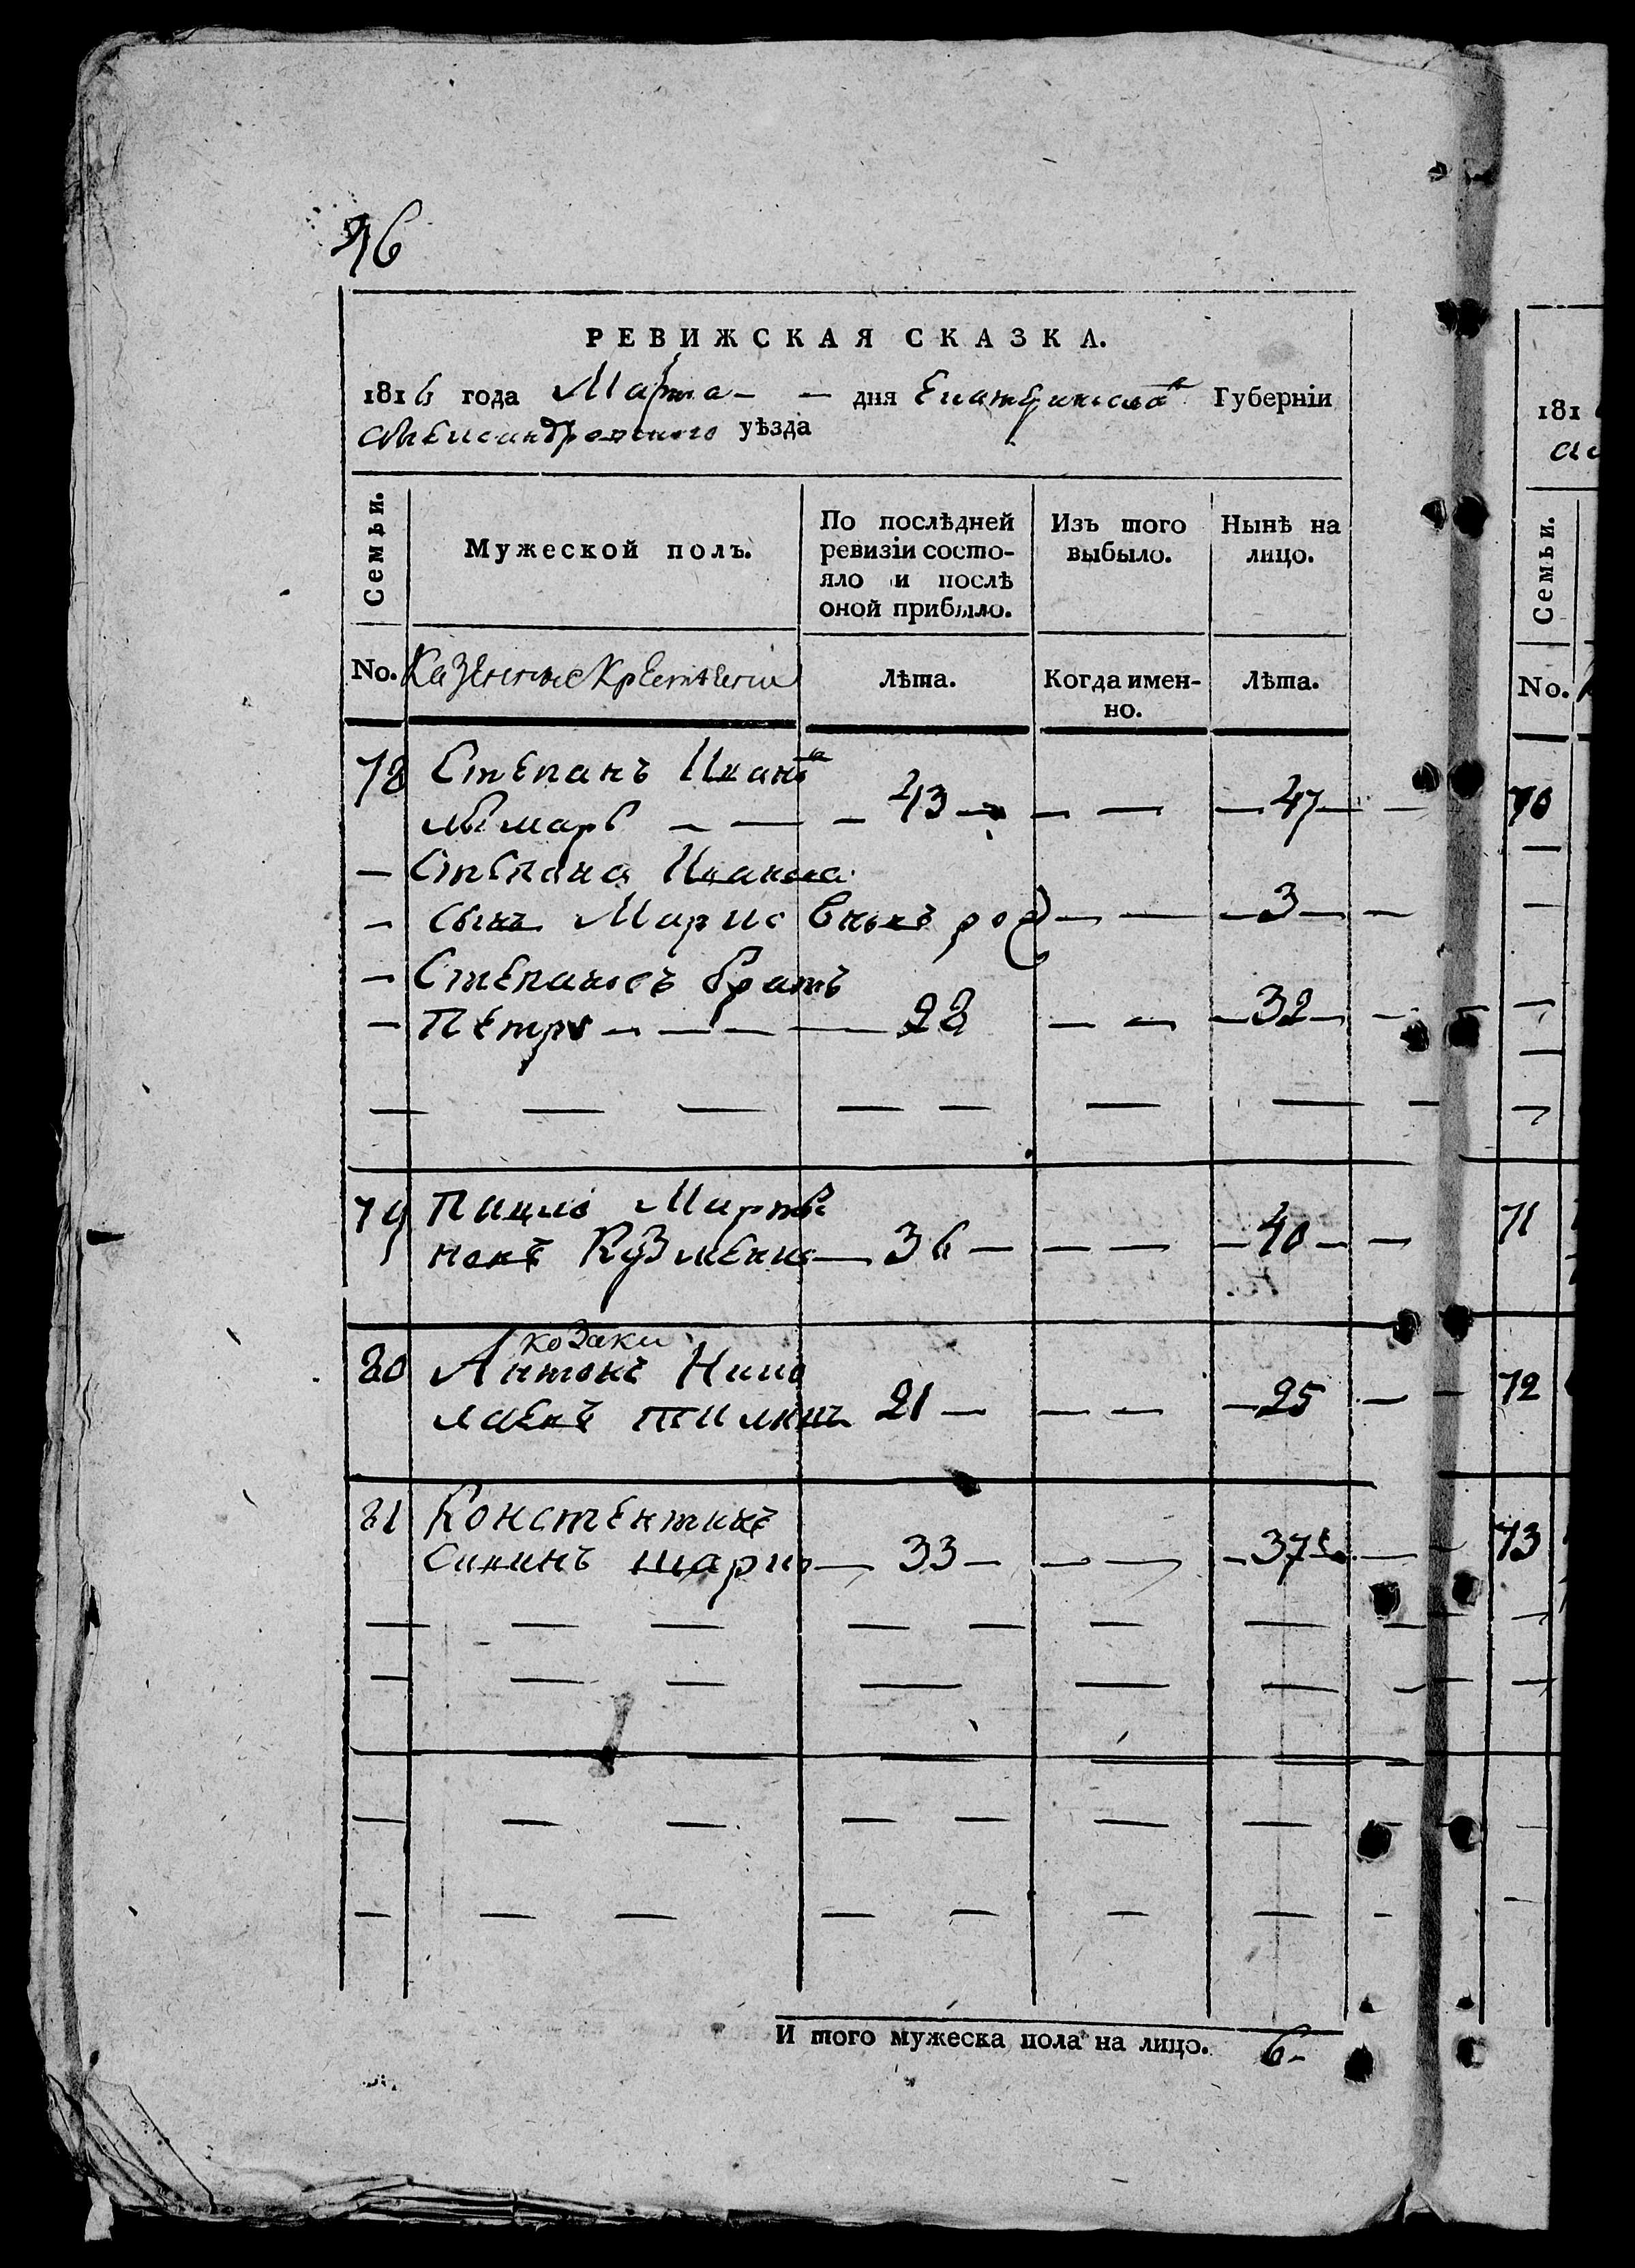 96
РЕВИЖСКАЯ СКАЗКА.
1816 года Марта — — дня Екатеринослав Губерніи
Александровского уѣзда
Семьи. Мужеской полъ. По послѣдней ревизіи состояло и послѣ оной прибыло. Изъ того выбыло. Нынѣ на лицо.
No. Казенные Крестьяни Лѣта. Когда именно. Лѣта.
78 Степанъ Иванов
Лимарь — — — 43 — — — — 47 —
— Степана Иванова
— сынъ Марко вновь род — — — 3 —
— Степановъ братъ
— Петръ — — — 28 — — — 32 —
79 Павло Марты
новъ Кузменко — 36 — — — — 40 —
козаки
80 Антонъ Нико
лаевъ 21 — — — — 25
81 Констентинъ
Савинъ 33 — — — — 37
И того мужеска пола на лицо. 6 —
181
Семьи.
No.
70
71
72
73